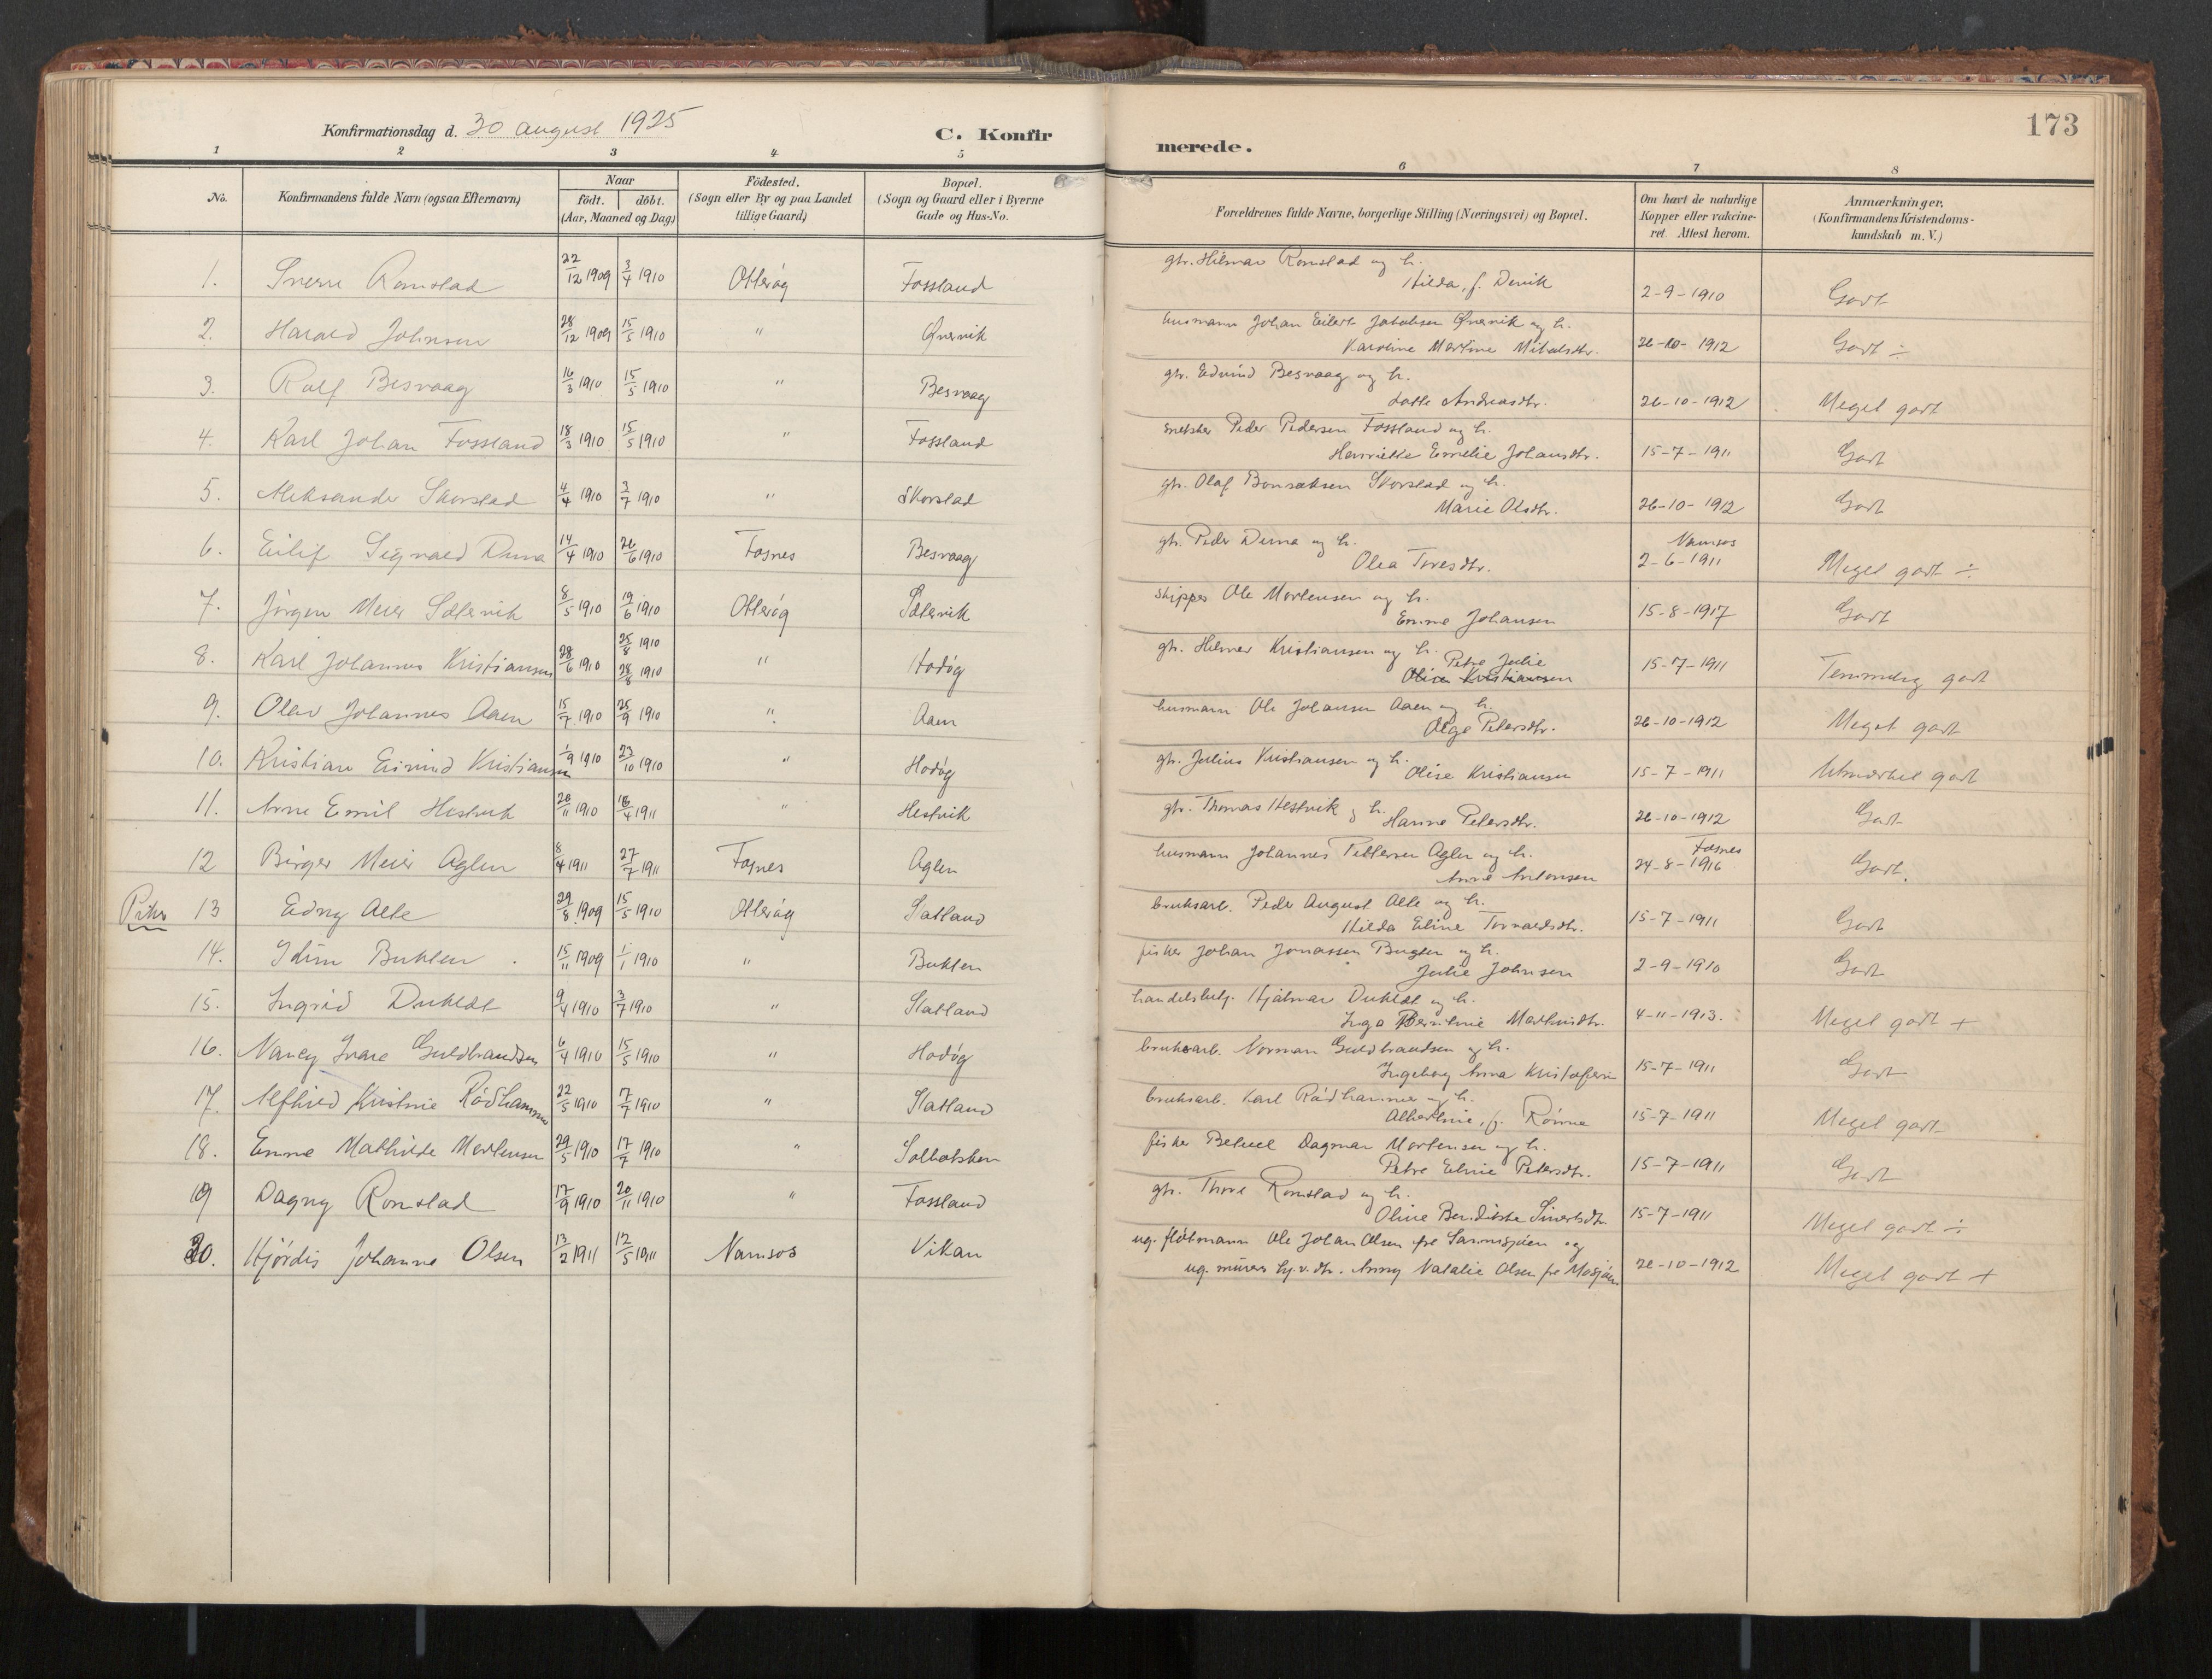 173
Konfirmationsdag d. 30 august 1925
C. Konfirmerede.
1 2 3 4 5 6 7 8
No. Konfirmandens fulde Navn (ogsaa Efternavn) Naar födt. döbt. (Aar, Maaned og Dag) Födested. (Sogn eller By og paa Landet tillige Gaard) Bopæl. (Sogn og Gaard eller i Byerne Gade og Hus-No. Forældrenes fulde Navne, borgerlige Stilling (Næringsvei) og Bopæl. Om havt de naturlige Kopper eller vakcineret Attest herom. Anmærkninger. (Konfirmandens Kristendomskundskab m. V.)
1. Sverre Romstad 22/12 1909 3/4 1910 Otterøy Fossland gbr. Hilmar Romstad og h.
Hilda, f. Duvik 2-9-1910 Godt
2. Harald Johnsen 28/12 1909 15/5 1910 " Qvernik husmann Johan Eilert Jakobsen Qvernik og h.
Karoline Martine Mikalsdtr. 26-10-1912 Godt ÷
3. Rolf Besvaag 16/3 1910 15/5 1910 " Besvaag gbr. Edvind Besvaag og h.
Lotte Andreasdtr. 26-10-1912 Meget godt
4. Karl Johan Fossland 18/3 1910 15/5 1910 " Fossland snekker Peder Pedersen Fossland og h.
Henriette Emelie Johansdtr. 15-7-1911 Godt
5. Aleksander Skorstad 4/4 1910 3/7 1910 " Skorstad gbr. Olaf Bonsaksen Skorstad og h.
Marie Olsdtr. 26-10-1912 Godt
6. Eilif Sigvald Duna 14/4 1910 26/6 1910 Fosnes Besvaag gbr. Peder Duna og h.
Olea Toresdtr. Namsos 2-6-1911 Meget godt ÷
7. Jörgen Meier Sætervik 8/5 1910 19/6 1910 Otterøy Sætervik skipper Ole Mortensen og h.
Emma Johansen 15-8-1917 Godt
8. Karl Johannes Kristiansen 28/6 1910 25/8 1910 28/8 1910 " Hodøy gbr. Helmer Kristiansen og h. Petra Julie
Olise Kristiansen 15-7-1911 Temmelig godt
9. Olav Johannes Aaen 15/7 1910 25/9 1910 " Aaen husmann Ole Johansen Aaen og h.
Olga Petersdtr. 26-10-1912 Meget godt
10. Kristian Eivind Kristiansen 1/9 1910 23/10 1910 " Hodøy gbr. Julius Kristiansen og h.
Olise Kristiansen 15-7-1911 Utmerket godt
11. Arne Emil Hestvik 20/11 1910 18/4 1911 " Hestvik gbr. Thomas Hestvik og h.
Hanna Petersdtr. 26-10-1912 Godt
12 Birger Meier Aglen 8/4 1911 27/7 1911 Fosnes Aglen husmann Johannes Pettersen Aglen og h.
Anna Antonsen Fosnes 24-8-1916 Godt.
Piker 13 Edny Alte 29/8 1909 15/5 1910 Otterøy Statland bruksarb. Peder August Alte og h.
Hilda Eline Torvaldsdtr. 15-7-1911 Godt
14. Idun Buhlen 15/11 1909 1/1 1910 " Buhlen fisker Johan Jonassen Buglen og h.
Julie Johnsen 2-9-1910 Godt
15. Ingrid Dukedt 9/4 1910 3/7 1910 " Statland handelsbetj. Hjalmar Dukedt og h.
Inga Berntine Martinsdtr. 4-11-1913. Meget godt +
16. Nancy Ivare Guldbrandsen 6/4 1910 15/5 1910 " Hodøy bruksarb. Norman Guldbrandsen og h.
Ingeborg Anna Kristofersen 15-7-1911 Godt
17. Alfhild Kristine Rödhammer 22/5 1910 17/7 1910 " Statland bruksarb. Karl Rödhammer og h.
Albertine, f. Römme 15-7-1911 Meget godt
18. Emma Mathilde Mortensen 29/5 1910 17/7 1910 " Solbakken fisker Betuel Dagmar Mortensen og h.
Petra Eline Petersdtr. 15-7-1911 Godt
19 Dagny Romstad 17/9 1910 20/11 1910 " Fossland gbr. Thore Romstad og h.
Oline Bendikte Sivertsdtr. 15-7-1911 Meget godt ÷
20. Hjördis Johanne Olsen 13/2 1911 12/5 1911 Namsos Vikan ug. flötmann Ole Johan Olsen fra Sannisjöen og
ug. murer Anny Natalie Olsen fra Mosjöen 26-10-1912 Meget godt +